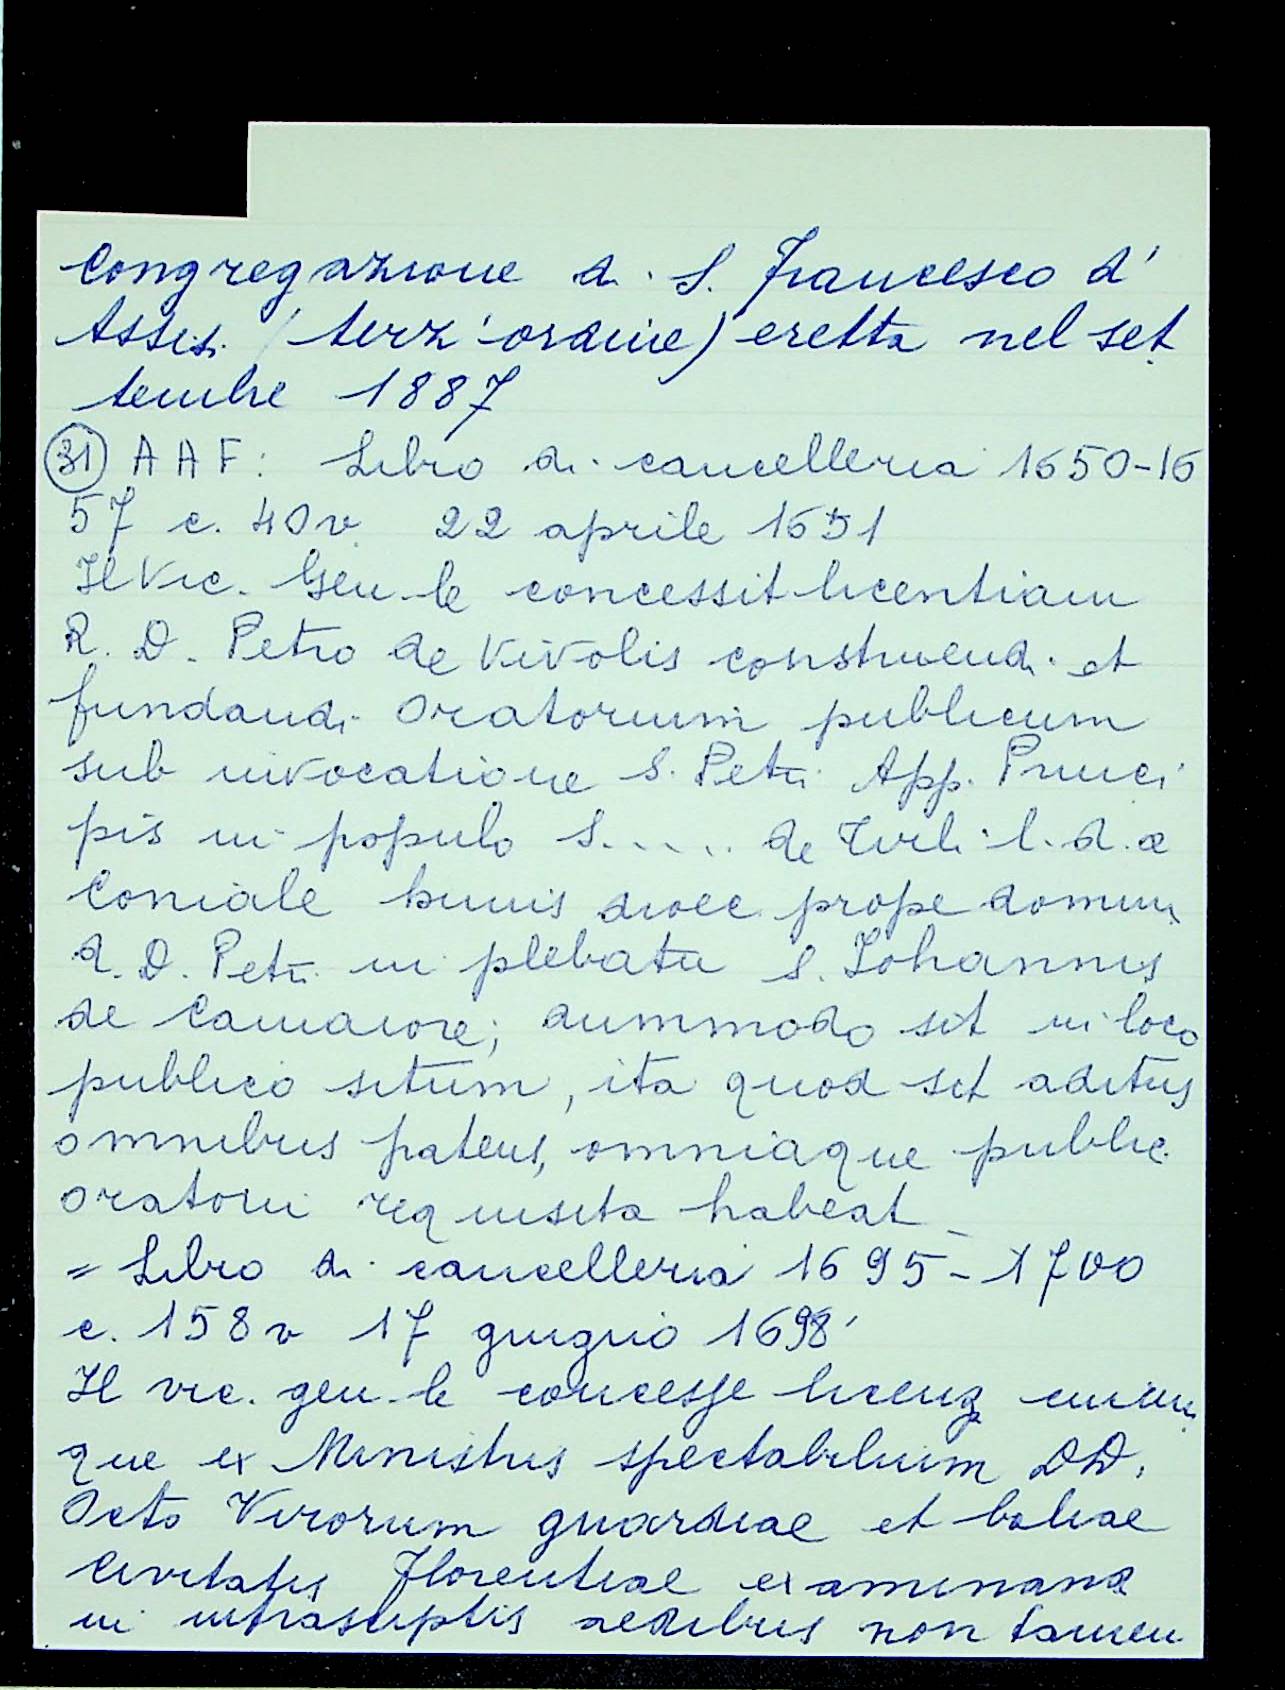 Congregazione di S. Francesco d'
Assisi (terz'ordine) eretta nel set
tembre 1887
(31) AAF: Libro di cancelleria 1650-16
57 c. 40v 22 aprile 1651
Il Vic. Gen.le concessit licentiam
R. D. Petro de Vivolis construendi et
fundandi Oratorium publicum
sub invocatione S. Petri App. Princi
pis in populo S..... de Turli l. d. a
Coniale huius dioec. prope domum
d. D. Petri in plebatu S. Johannis
de Camaiore; dummodo sit in loco
publico situm, ita quod sit aditus
omnibus patens, omniaque public.
oratorii requisita habeat
= Libro di cancelleria 1695-1700
c. 158v 17 giugno 1698
Il vic. gen.le concesse licenz cuicum
que ex Ministris spectabilium DD.
Octo Virorum guardiae et baliae
Civitatis Florentiae examinand
in infrascriptis aedibus non tamen